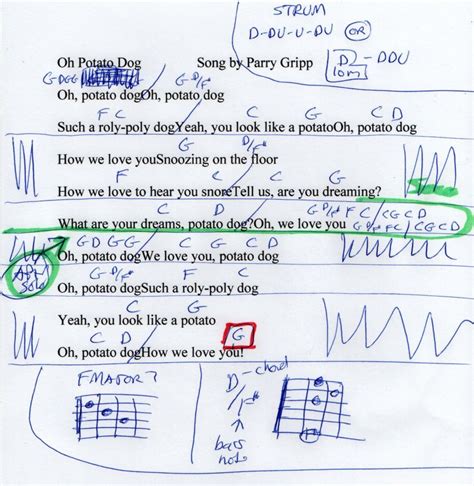 STRUM
D-DU-U-DU OR
D - DDU
Oh Potato Dog Song by Parry Gripp
G-DGG G D/F#
Oh, potato dogOh, potato dog
F C C G C D
Such a roly-poly dogYeah, you look like a potatoOh, potato dog
G D/F#
How we love youSnoozing on the floor
F C C G
How we love to hear you snoreTell us, are you dreaming?
C D G D/F# F C / C G C D
What are your dreams, potato dog?Oh, we love you G D/F# F C / C G C D
G D G G C G C D
Oh, potato dogWe love you, potato dog
SOLO
G D/F# F C
Oh, potato dogSuch a roly-poly dog
C G
Yeah, you look like a potato
C D G
Oh, potato dogHow we love you!
FMAJOR7
D-chord
D/F#